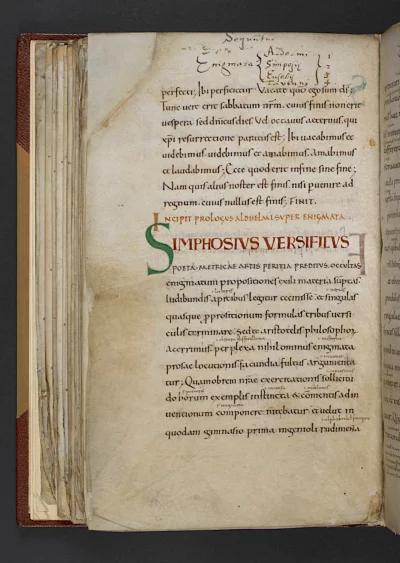 Sequuntur
Enigmata
Adelmi 1
Simposij 2
Eusebij 3
perfecti; Ibi perficietur; Vacate quo ego sum ds;
Tunc vere erit sabbatum nrm. cuius finis non erit
vespera sed dnicus dies Vel octauus aeternus. qui
xpi resurrectione est; Ibi uacabimus et
uidebimus uidebimus et amabimus. Amabimus
et laudabimus; Ecce quod erit in fine sine fine;
Nam quis alius noster est finis. nisi puenire ad
regnum. cuius nullus est finis; FINIT.
INCIPIT PROLOGUS ALDHELMI SUPER ENIGMATA
SIMPHOSIUS VERSIFICUS
POETA. METRICAE ARTIS PERITIA PREDITUS. OCCULTAS
enigmatum propositiones exili materia suptas
ludibundis apicibus legitur cecinisse. et singulas
quasque ppositionum formulas tribus uersi
culis terminare. Sed et aristotelis philosophor
Acerrimus. perplexa nihilominus enigmata
prosae locucionis facundia fultus argumenta
tur; Quamobrem exercitationis sollicitu
do horum exemplis instincta & comentis ad in
uentionum componere nitebatur et uelut in
quodam gimnasio prima ingenioli rudimenta